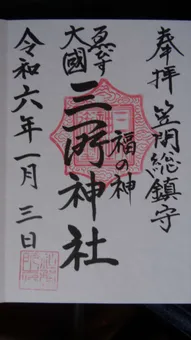 奉拝 笠間総鎮守
福の神
三所神社
大國
令和六年一月三日